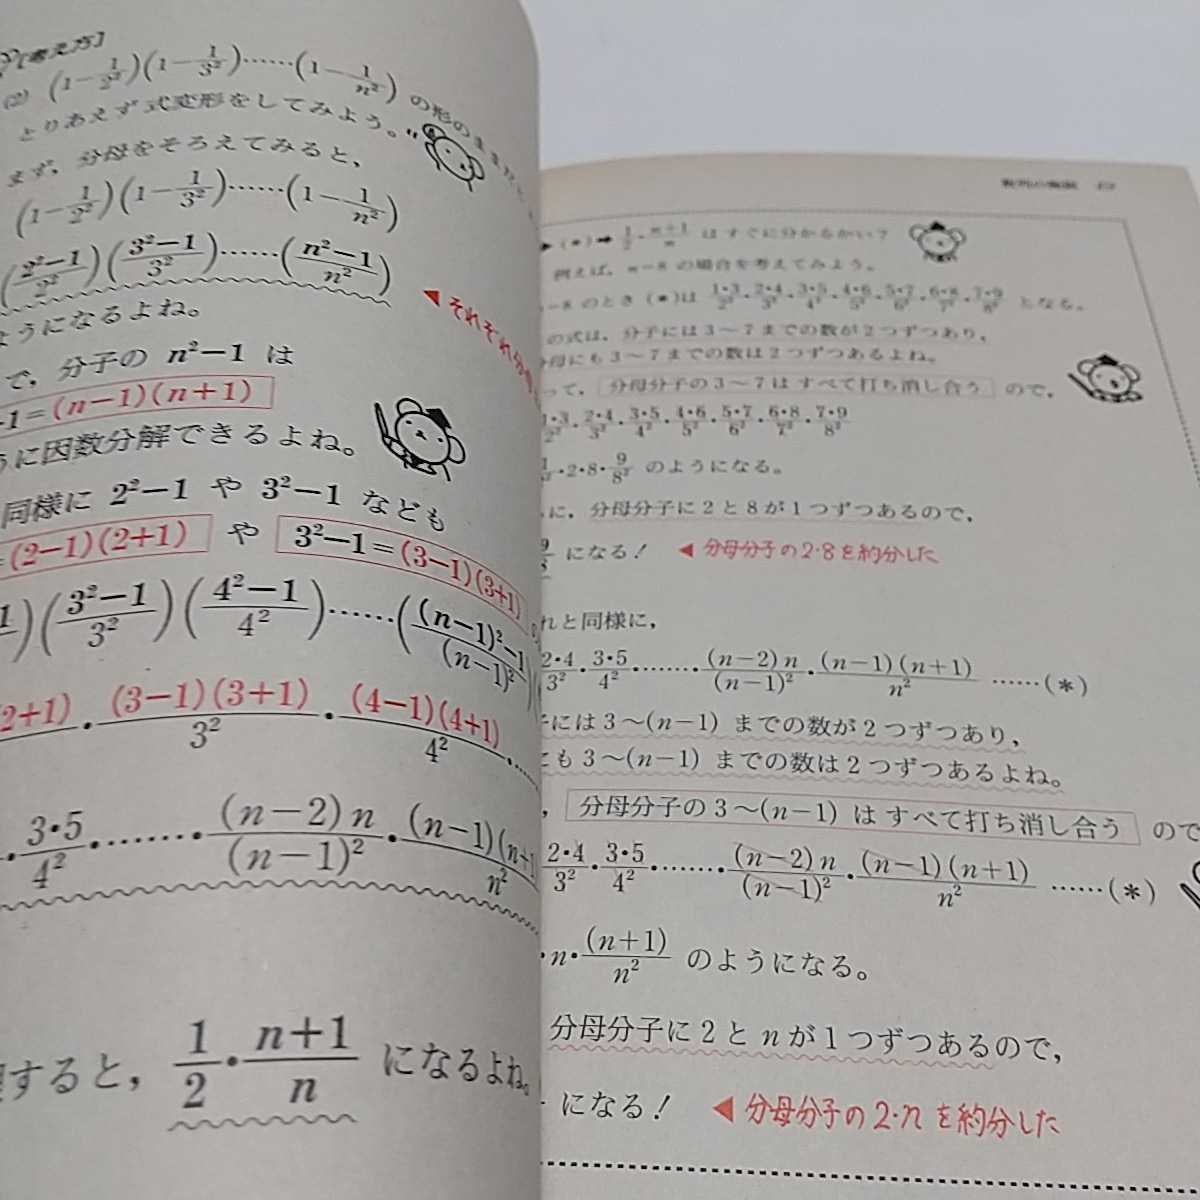 [考え方]
(2) (1−1/2²)(1−1/3²)……(1−1/n²) の形のままだと
とりあえず式変形をしてみよう。"
まず，分母をそろえてみると，
(1−1/2²)(1−1/3²)……(1−1/n²)
(2²−1/2²)(3²−1/3²)……(n²−1/n²)
◀それぞれ分母
ようになるよね。
で，分子の n²−1 は
−1=(n−1)(n+1)
うに因数分解できるよね。
同様に 2²−1 や 3²−1 なども
=(2−1)(2+1) や 3²−1=(3−1)(3+1)
)(3²−1/3²)(4²−1/4²)……((n−1)²−1/(n−1)²)
2+1)・(3−1)(3+1)/3²・(4−1)(4+1)/4²・……
・3・5/4²・……・(n−2)n/(n−1)²・(n−1)(n+1/n²
すると，1/2・n+1/n になるよね。
▶(*)➡ 1/2・n+1/n はすぐに分かるかい？
例えば，n=8 の場合を考えてみよう。
=8 のとき (*)は 1・3/2²・2・4/3²・3・5/4²・4・6/5²・5・7/6²・6・8/7²・7・9/8² となる。
の式は，分子には3〜7までの数が2つずつあり，
分母にも3〜7までの数は2つずつあるよね。
って，分母分子の3〜7はすべて打ち消し合う ので，
1・3/2²・2・4/3²・3・5/4²・4・6/5²・5・7/6²・6・8/7²・7・9/8²
・2・8・9/8² のようになる。
に，分母分子に2と8が1つずつあるので，
9/8 になる！ ◀分母分子の2・8を約分した
れと同様に，
2・4/3²・3・5/4²・……・(n−2)n/(n−1)²・(n−1)(n+1)/n² ……(*)
子には3〜(n−1) までの数が2つずつあり，
にも3〜(n−1) までの数は2つずつあるよね。
，分母分子の3〜(n−1) はすべて打ち消し合う ので
2・4/3²・3・5/4²・……・(n−2)n/(n−1)²・(n−1)(n+1)/n² ……(*)
・n・(n+1)/n² のようになる。
分母分子に2とnが1つずつあるので，
になる！ ◀分母分子の2・nを約分した